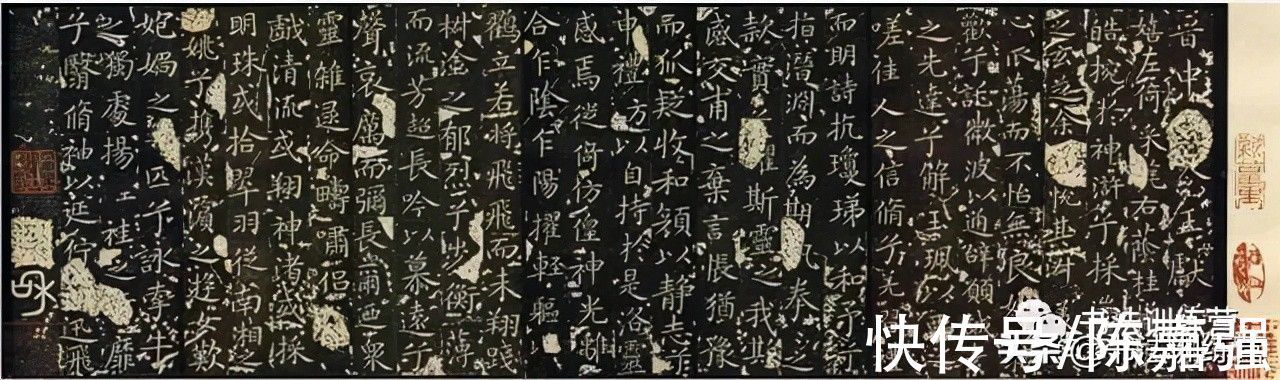 嬉左倚采旄右蔭桂
皓捥於神滸兮採
之玄之余悅其淑
心蕩而不怡無良
歡兮託微波以通辭願
之先達兮解玉珮以
嗟佳人之信脩兮羌
而明詩抗瓊珶以和予兮
指潛淵而為期執眷之
款實懼斯靈之我欺
感交甫之棄言悵猶豫
而狐疑收和顏以靜志兮
申禮防以自持於是洛靈
感焉徙倚仿偟神光離
合乍陰乍陽擢輕軀以
鶴立若將飛飛而未翔踐
椒塗之郁烈兮步衡薄
而流芳超長吟以慕遠兮
聲哀厲而彌長爾迺眾
靈雜遝命疇嘯侶
戲清流或翔神渚或採
明珠或拾翠羽從南湘之
姚兮攜漢濱之遊女歎
炮媧之匹兮詠牽牛
之獨處揚袿之靡
兮翳脩袖以延佇迅飛
快传号/陈嘉强